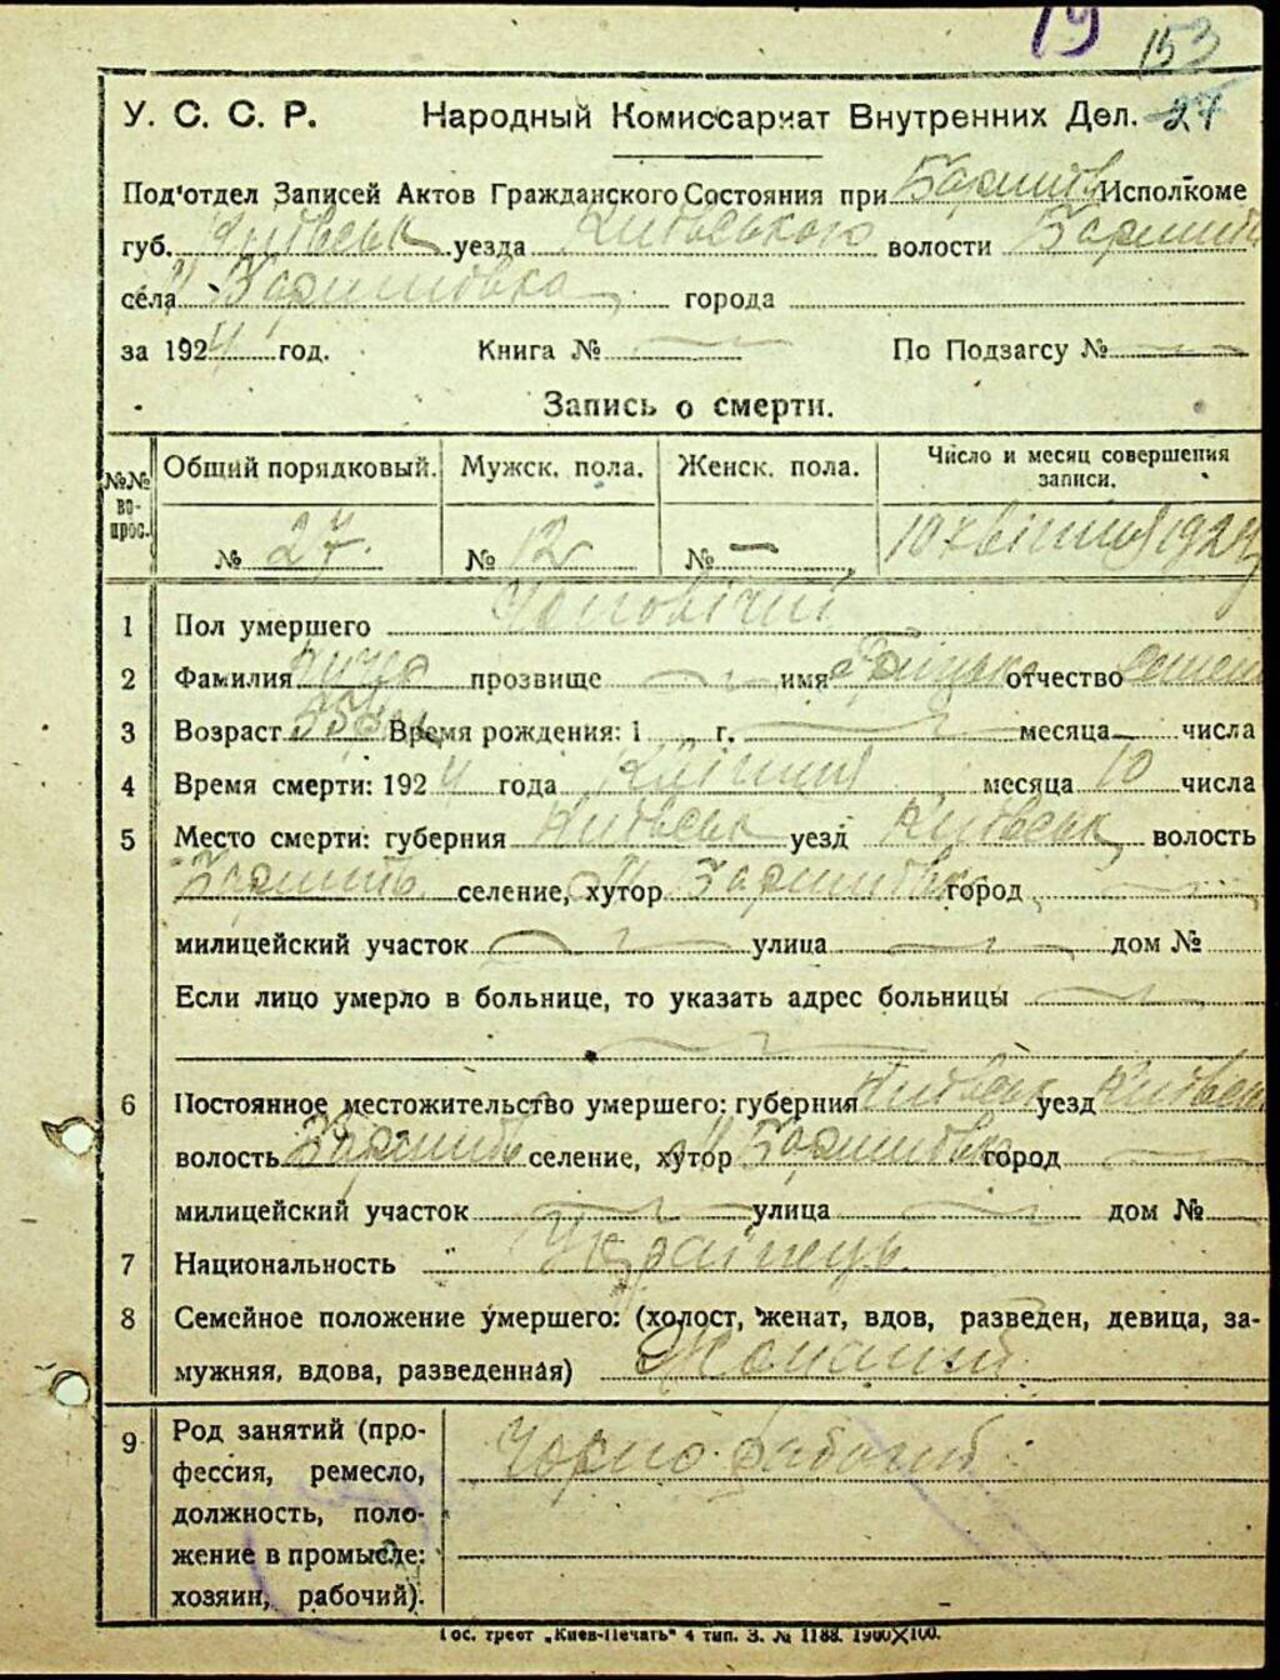 19 153
У. С. С. Р. Народный Комиссариат Внутренних Дел. 27
Под'отдел Записей Актов Гражданского Состояния при Баришів Исполкоме
губ. Київськ уезда Київського волости Баришів
села М Баришовка города
за 1924 год. Книга № По Подзагсу №
Запись о смерти.
№№ во-прос. Общий порядковый. Мужск. пола. Женск. пола. Число и месяц совершения записи.
№ 27. № 12 № — 10 квітня 1924
1 Пол умершего Чоловічий
2 Фамилия прозвище имя Гріцько отчество
3 Возраст 55 Время рождения: 1 г. месяца числа
4 Время смерти: 1924 года Квітня месяца 10 числа
5 Место смерти: губерния Київськ уезд Київськ волость
Баришів селение, хутор М Баришовка город
милицейский участок улица дом №
Если лицо умерло в больнице, то указать адрес больницы
6 Постоянное местожительство умершего: губерния Київськ уезд Київськ
волость Баришів селение, хутор М Баришовка город
милицейский участок улица дом №
7 Национальность Українець.
8 Семейное положение умершего: (холост, женат, вдов, разведен, девица, за-
мужняя, вдова, разведенная) Жонатий
9 Род занятий (про- Чорно-рабочий
фессия, ремесло,
должность, поло-
жение в промысле:
хозяин, рабочий).
Гос. трест „Киев-Печать" 4 тип. З. № 1188. 1900X100.